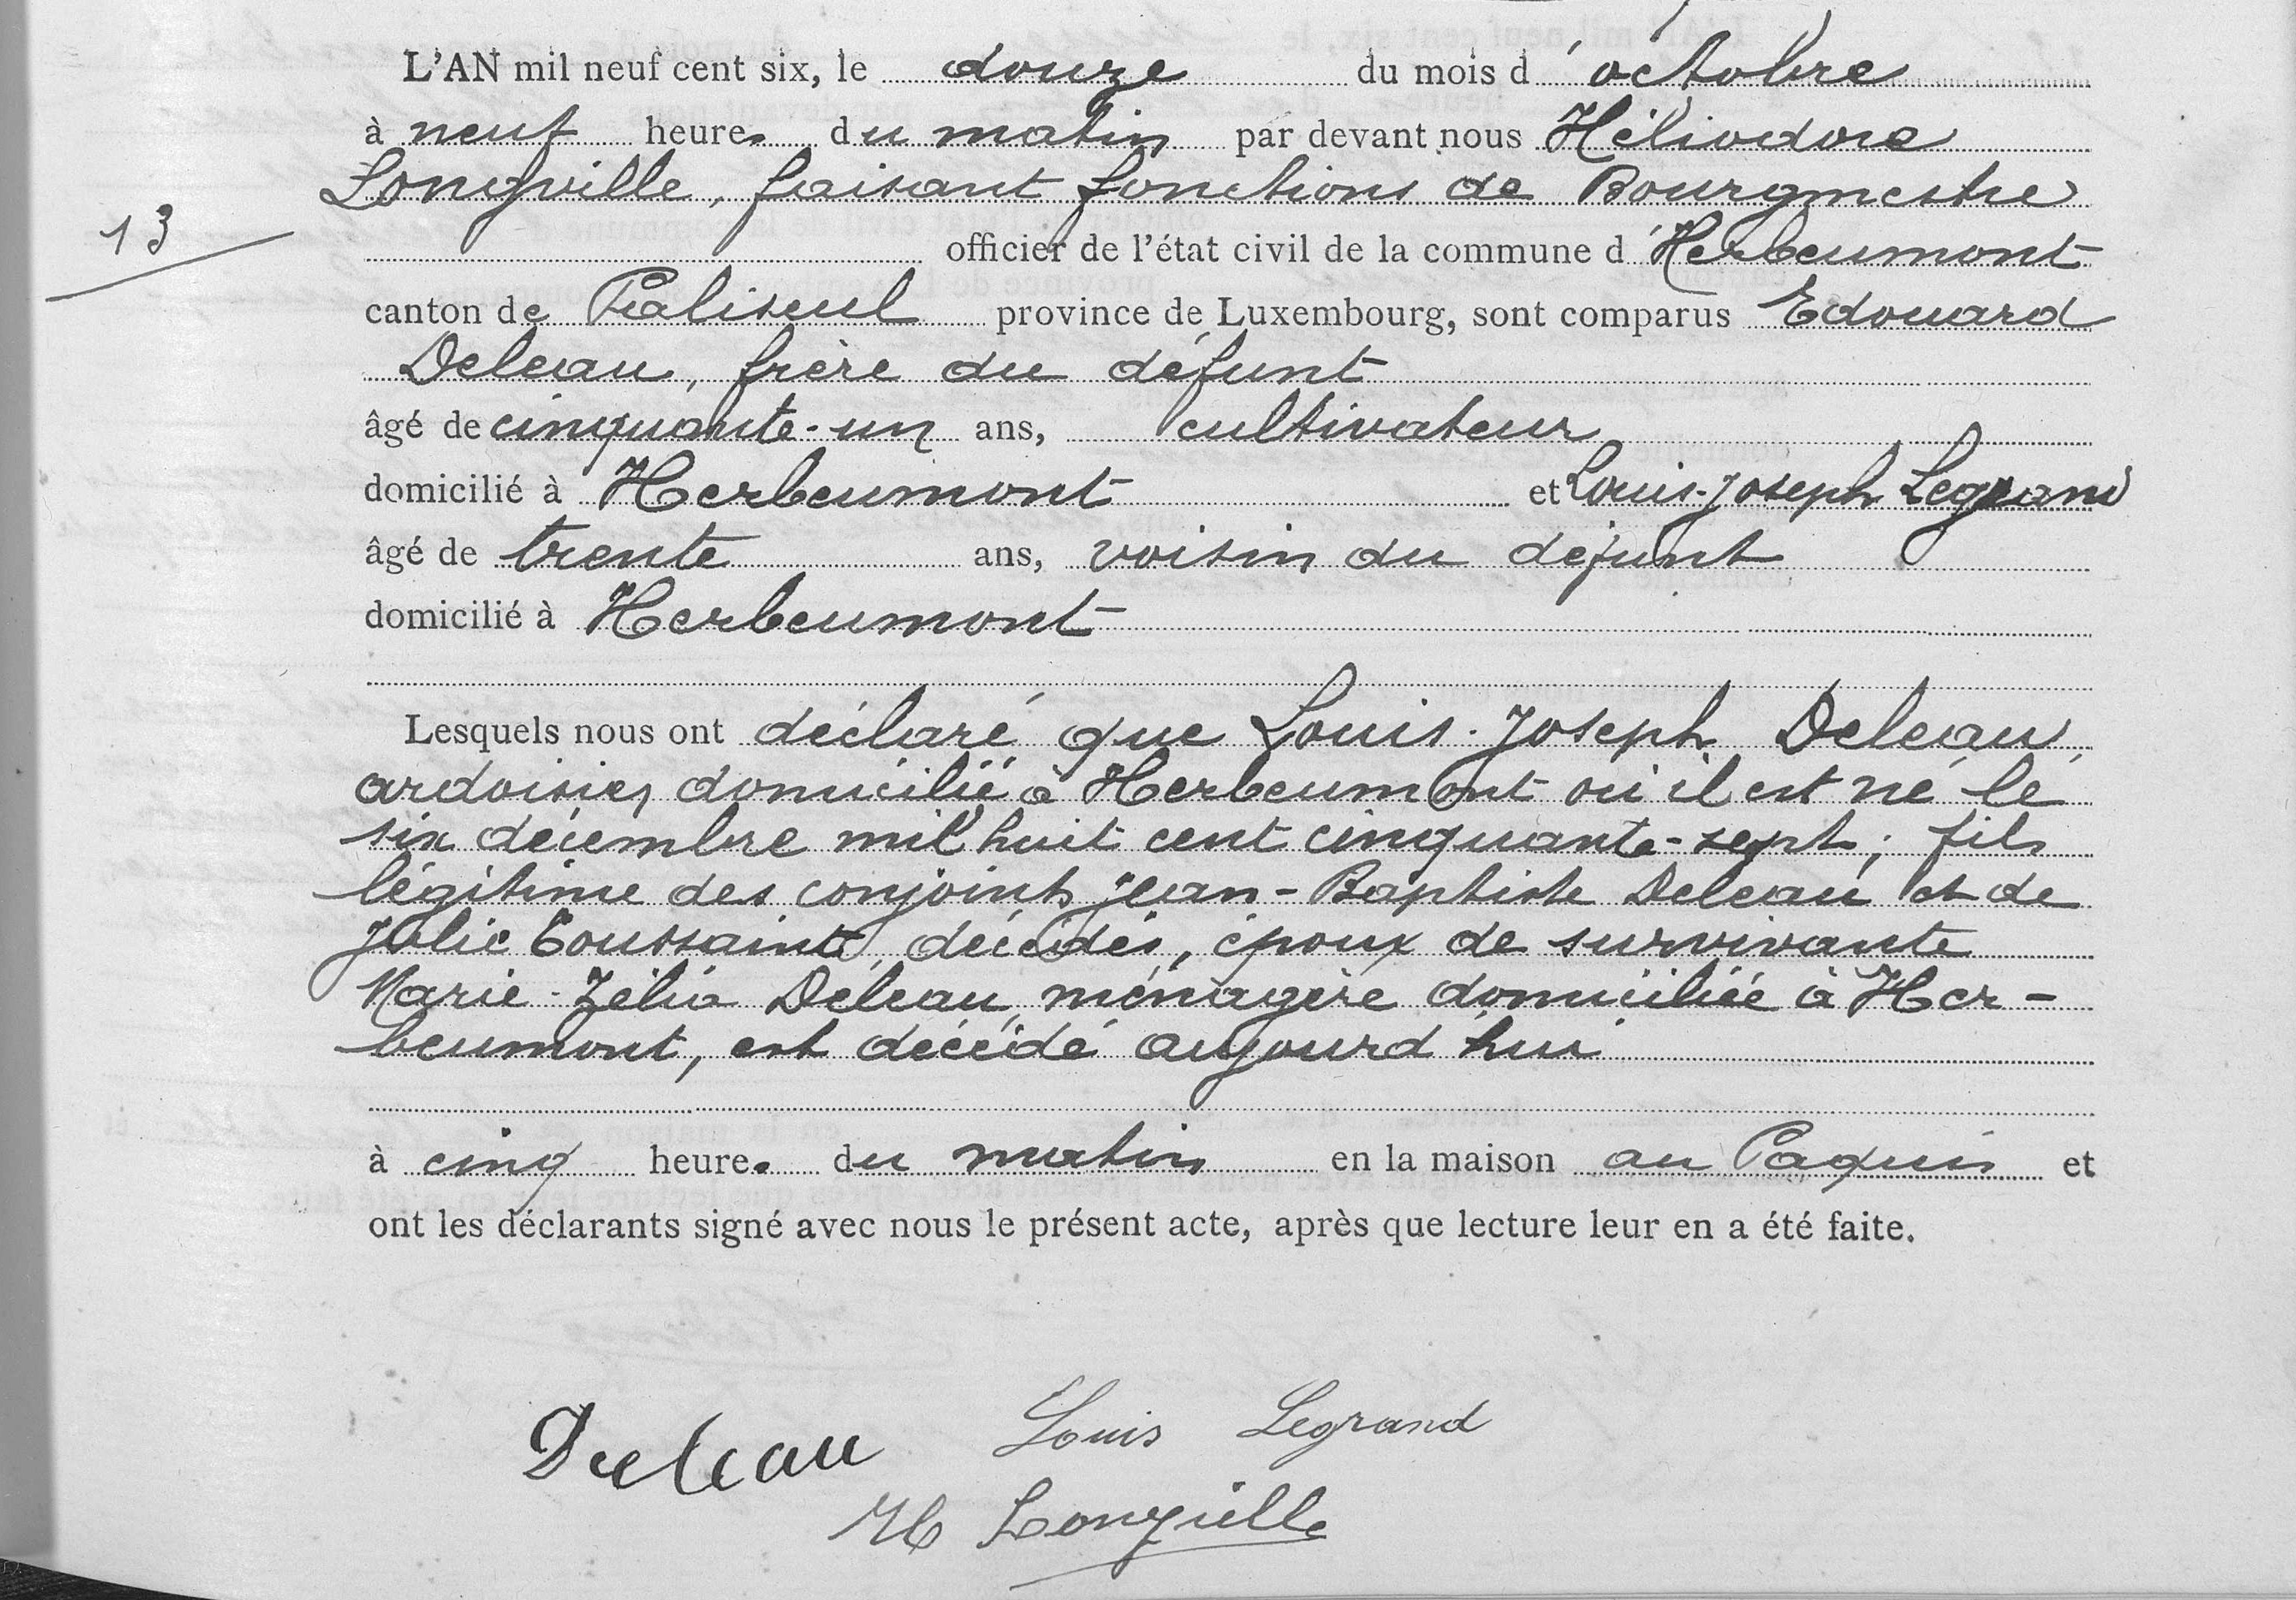 L'AN mil neuf cent six, le douze du mois d'octobre
à neuf heures du matin par devant nous Héliodore
Longville, faisant fonctions de Bourgmestre
13
officier de l'état civil de la commune d'Herbeumont
canton de Paliseul province de Luxembourg, sont comparus Edouard
Deleau, frère du défunt
âgé de cinquante-un ans, cultivateur
domicilié à Herbeumont et Louis-Joseph Legrand
âgé de trente ans, voisin du défunt
domicilié à Herbeumont
Lesquels nous ont déclaré que Louis-Joseph Deleau,
ardoisier, domicilié à Herbeumont où il est né le
six décembre mil huit cent cinquante-sept; fils
légitime des conjoints Jean-Baptiste Deleau et de
Julie Toussaint, décédés, époux de survivante
Marie-Zélia Deleau, ménagère domiciliée à Her-
beumont, est décédé aujourd'hui
à cinq heures du matin en la maison au Paquis et
ont les déclarants signé avec nous le présent acte, après que lecture leur en a été faite.
Deleau Louis Legrand
H Longville